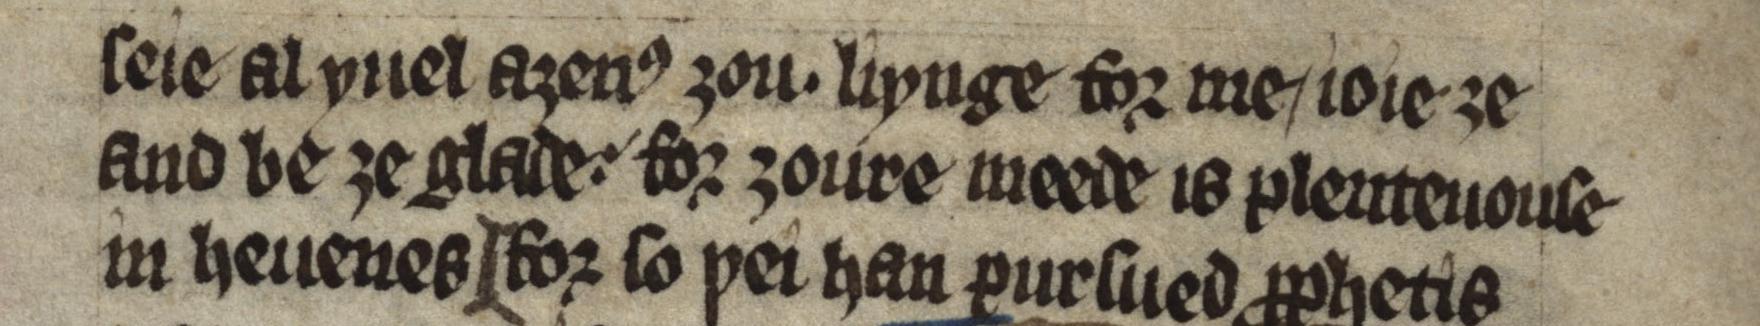 seie al yuel aȝenꝰ ȝou. liynge for me/ ioie ȝe
and be ȝe glade:́ for ȝoure meede is plenteuouse
in heuenes for so þei han pursued ꝓphetis